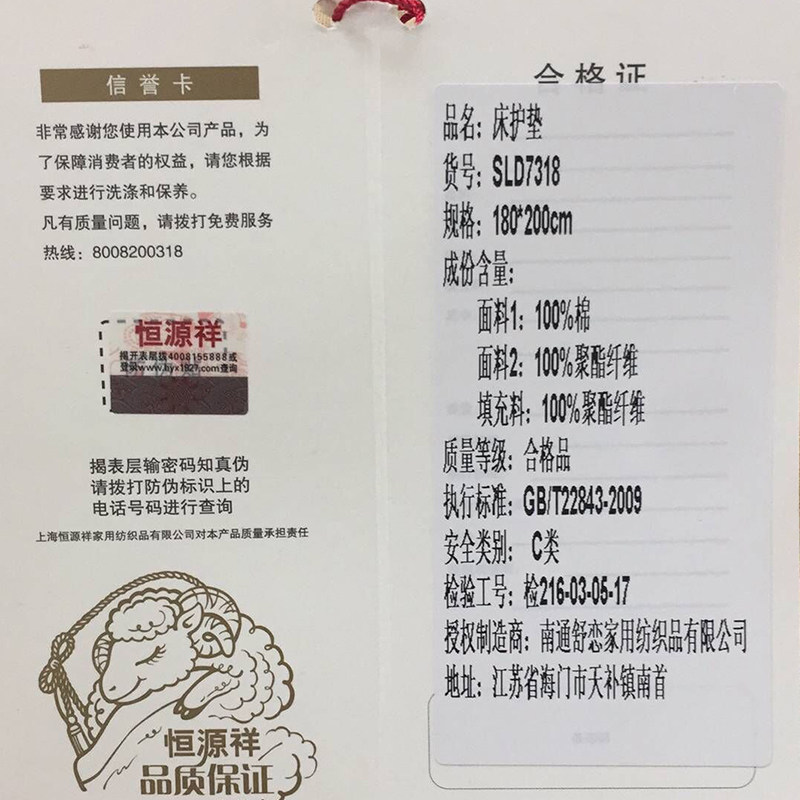 信誉卡
非常感谢您使用本公司产品，为
了保障消费者的权益，请您根据
要求进行洗涤和保养。
凡有质量问题，请拨打免费服务
热线：8008200318
恒源祥
揭开表层拨4008155888或
登录www.hyx1927.com查询
揭表层输密码知真伪
请拨打防伪标识上的
电话号码进行查询
上海恒源祥家用纺织品有限公司对本产品质量承担责任
恒源祥
品质保证
合格证
品名：床护垫
货号：SLD7318
规格：180*200cm
成份含量：
面料1：100%棉
面料2：100%聚酯纤维
填充料：100%聚酯纤维
质量等级：合格品
执行标准：GB/T22843-2009
安全类别： C类
检验工号：检216-03-05-17
授权制造商：南通舒恋家用纺织品有限公司
地址：江苏省海门市天补镇南首